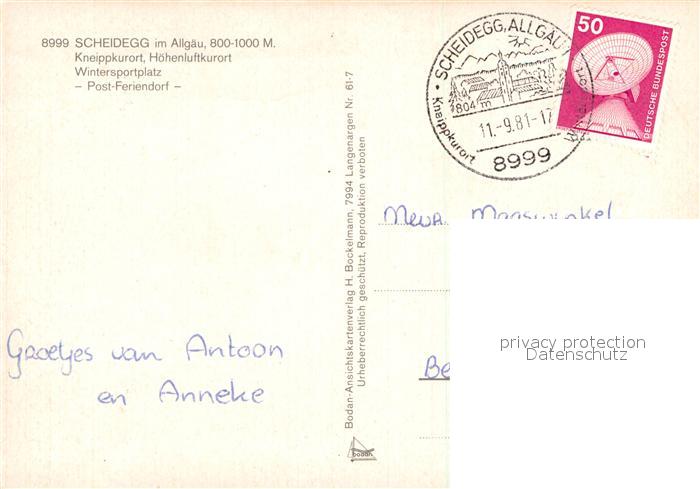 8999 SCHEIDEGG im Allgäu, 800-1000 M.
Kneippkurort, Höhenluftkurort
Wintersportplatz
– Post-Feriendorf –
SCHEIDEGG, ALLGÄU
804 m
11.-9.81-17
Kneippkurort
8999
50
DEUTSCHE BUNDESPOST
Bodan-Ansichtskartenverlag H. Bockelmann, 7994 Langenargen Nr. 61-7
Urheberrechtlich geschützt, Reproduktion verboten
bodan
Mevr. Maaswinkel
Be
Groetjes van Antoon
en Anneke
privacy protection
Datenschutz